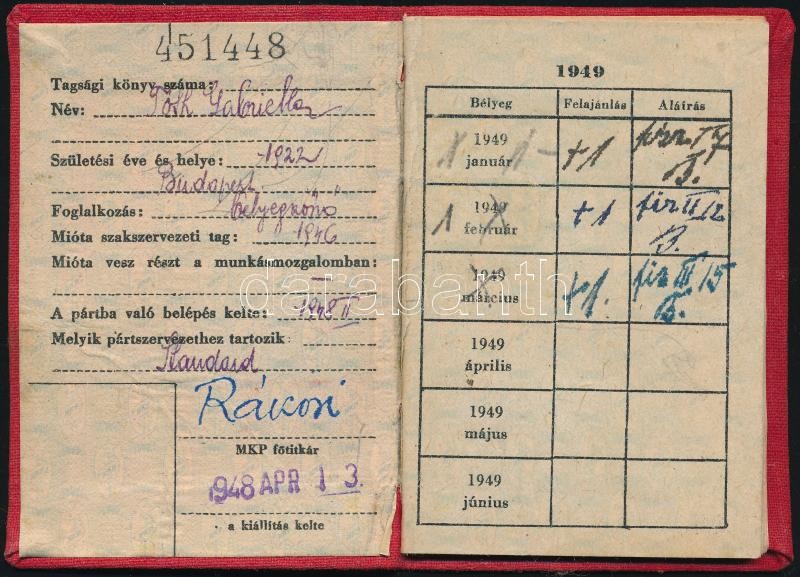 451448
Tagsági könyv száma:
Név: Tóth Gabriella
Születési éve és helye: 1922
Budapest
Foglalkozás:
Mióta szakszervezeti tag: 1946
Mióta vesz részt a munkásmozgalomban:
–
A pártba való belépés kelte: 1948 II
Melyik pártszervezethez tartozik
Standard
Rákosi
MKP főtitkár
1948 APR 13.
a kiállítás kelte
1949
Bélyeg Felajánlás Aláírás
1949 január +1
1949 február +1
1949 március +1.
1949 április
1949 május
1949 június
darabanth